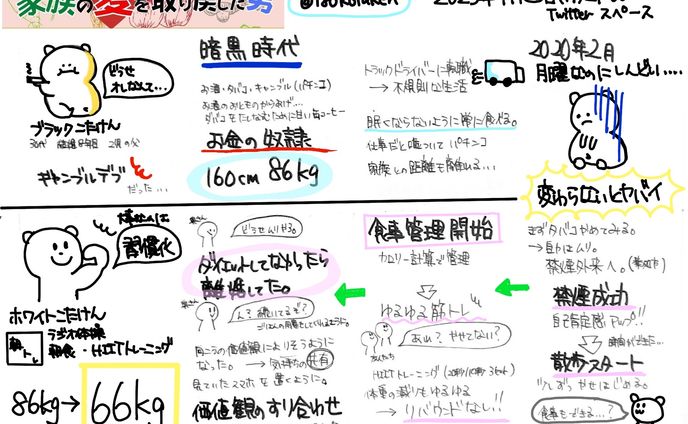 家族の愛を取り戻した男
Twitter スペース
どうせ
オレなんて…
ブラックごたけん
ギャンブルデブ
だった…
暗黒時代
お酒・タバコ・ギャンブル(パチンコ)
お酒のおとものからあげ…
タバコをたしなむために甘い缶コーヒー
お金の奴隷
160cm 86kg
トラックドライバーに転職
→ 不規則な生活
眠くならないように常に食べる。
仕事だと嘘ついてパチンコ
家族との距離も離れる…
2020年2月
月曜なのにしんどい….
変わらないとヤバイ
まずタバコやめてみる。
→ 自力はムリ。
禁煙外来へ。
禁煙成功
自己肯定感アップ!!
散歩スタート
少しずつやせはじめる。
食事もできる…?
食事管理開始
カロリー計算で管理
ゆるゆる筋トレ
あれ? やせてない?
HIITトレーニング
体重の減りもゆるゆる
→ リバウンドなし!!
どうせムリやろ。
ダイエットしてなかったら
離婚してた。
ん? 続いてるぞ?
価値観のすり合わせ
大事なのは
習慣化
ホワイトごたけん
朝トレ
ラジオ体操
朝食・HIITトレーニング
86kg→66kg